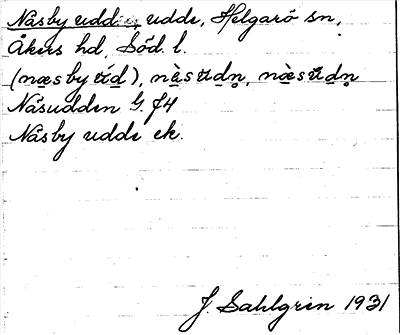 Näsby udd, udde, Helgarö sn,
Åkers hd, Söd. l.
(næsby ŭ́d), næ̀sŭdn̥, næ̀sŭdn̥
Näsudden G. J4
Näsby udde ek.
J. Sahlgren 1931